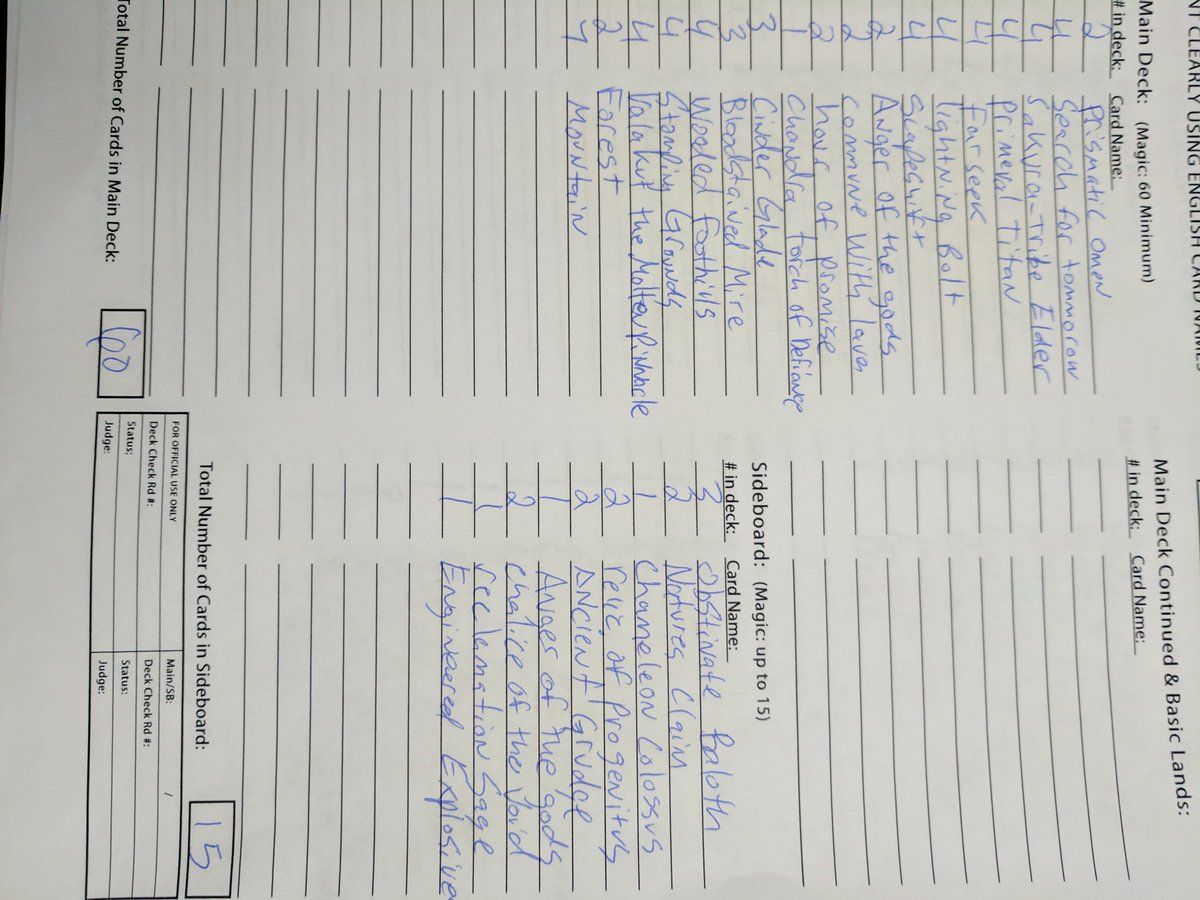 NT CLEARLY USING ENGLISH CARD NAMES
Main Deck: (Magic: 60 Minimum)
# in deck: Card Name:
2 Prismatic Omen
4 Search for tommorow
4 Sakura-Tribe Elder
4 Primeval Titan
4 Farseek
4 lightning Bolt
4 Scapeshift
2 Anger of the gods
2 commune with lava
2 hour of promise
1 Chandra torch of Defiance
3 Cinder Glade
3 Bloodstained Mire
4 Wooded foothills
4 Stamping Grounds
4 Valakut the Molten Pinnacle
2 Forest
7 Mountain
Total Number of Cards in Main Deck: 60
Main Deck Continued & Basic Lands:
# in deck: Card Name:
Sideboard: (Magic: up to 15)
# in deck: Card Name:
3 Obstinate Baloth
2 Natures Claim
1 Chameleon Colossus
2 relic of Progenitus
2 Ancient Grudge
1 Anger of the gods
2 chalice of the void
1 reclamation Sage
1 Engineered Explosive
Total Number of Cards in Sideboard: 15
FOR OFFICIAL USE ONLY Main/SB: /
Deck Check Rd #: Deck Check Rd #:
Status: Status:
Judge: Judge: